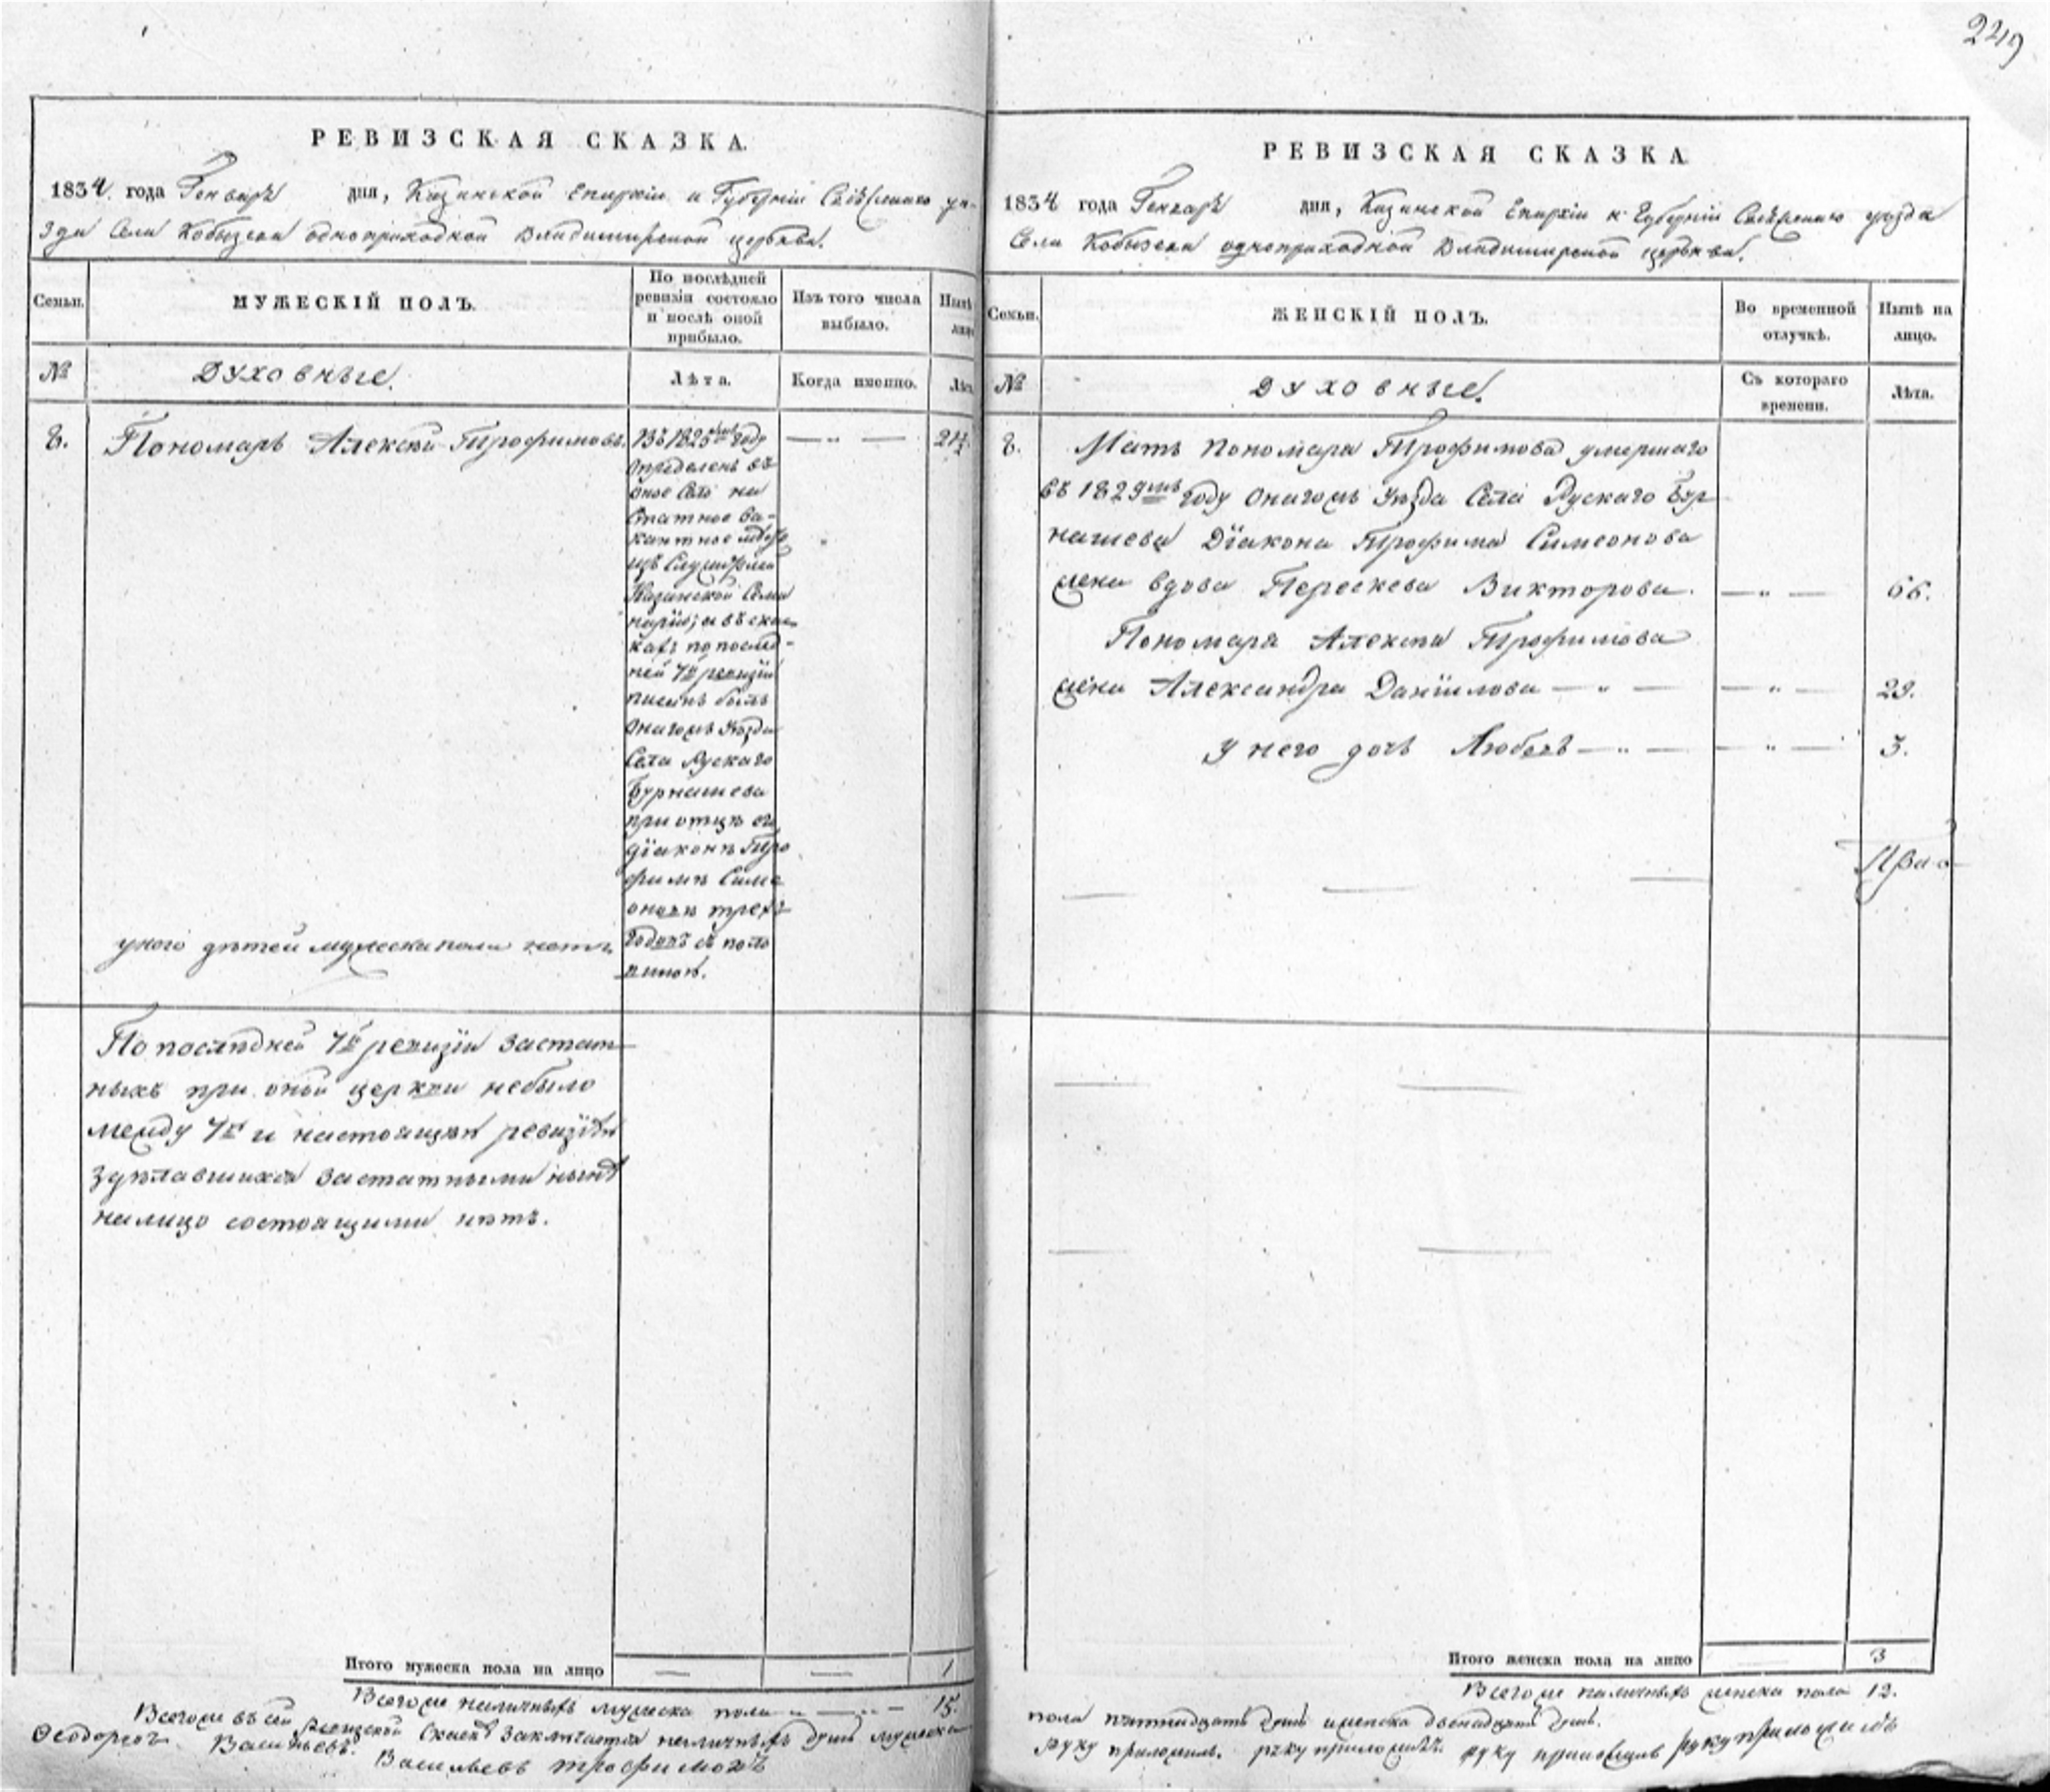 249
РЕВИЗСКАЯ СКАЗКА.
1834 года Генваря дня, Казанской Епархіи и Губерніи Свіяжскаго уѣ-
зда Села Кобызева одноприходной Владимирской церькви.
Семьи.
МУЖЕСКІЙ ПОЛЪ.
По послѣдней
ревизіи состояло
и послѣ оной
прибыло.
Изъ того числа
выбыло.
Нынѣ
лицо
№
Духовные.
Лѣта.
Когда именно.
Лѣта
8. Пономарь Алексѣй Трофимовъ.
Въ 1825мъ году
опредѣленъ въ
оное Село на
Статное ва-
кантное мѣсто
изъ
Казанской Семи
наріи; а въ сказ
кахъ по послѣд-
ней 7й ревизіи
писанъ былъ
онагожъ Уѣзда
Села Рускаго
Бурнашева
при отцѣ его
діаконѣ Тро
фимѣ Симе
оновѣ трехъ
годовъ съ поло
виною.
у него дѣтей мужеска пола нетъ
По послѣдней 7й ревизіи застат
ныхъ при оной церкви небыло
между 7й и настоящей ревизіей
здѣлавшихся застатными нынѣ
налицо состоящими нѣтъ.
Итого мужеска пола на лицо — — 1
Всего же наличныхъ мужеска пола — 15.
Всего же въ сей ревизской Сказкѣ заключается наличныхъ душъ мужеска
Ѳеодоръ Васильевъ.
Васильевъ Трофимовъ
РЕВИЗСКАЯ СКАЗКА
1834 года Генваря дня, Казанской Епархіи и Губерніи Свіяжскаго уѣзда
Села Кобызева одноприходной Владимирской церькви.
Семьи.
ЖЕНСКІЙ ПОЛЪ.
Во временной
отлучкѣ.
Нынѣ на
лицо.
№
Духовные.
Съ котораго
времени.
Лѣта.
8. Мать Пономаря Трофимова умершаго
въ 1829мъ году онагожъ Уѣзда Села Рускаго Бур
нашева Діакона Трофима Симеонова
жена вдова Перескева Викторова. — „ — 66.
Пономаря Алексѣя Трофимова
жена Александра Даніилова — „ — — „ — 29.
у него дочь Любовь — „ — — „ — 3.
Итого женска пола на лицо 3
Всего же наличныхъ женска пола 12.
пола пятнадцать душъ и женска двенадцать душъ.
руку приложилъ. руку приложилъ. руку приложилъ руку приложилъ